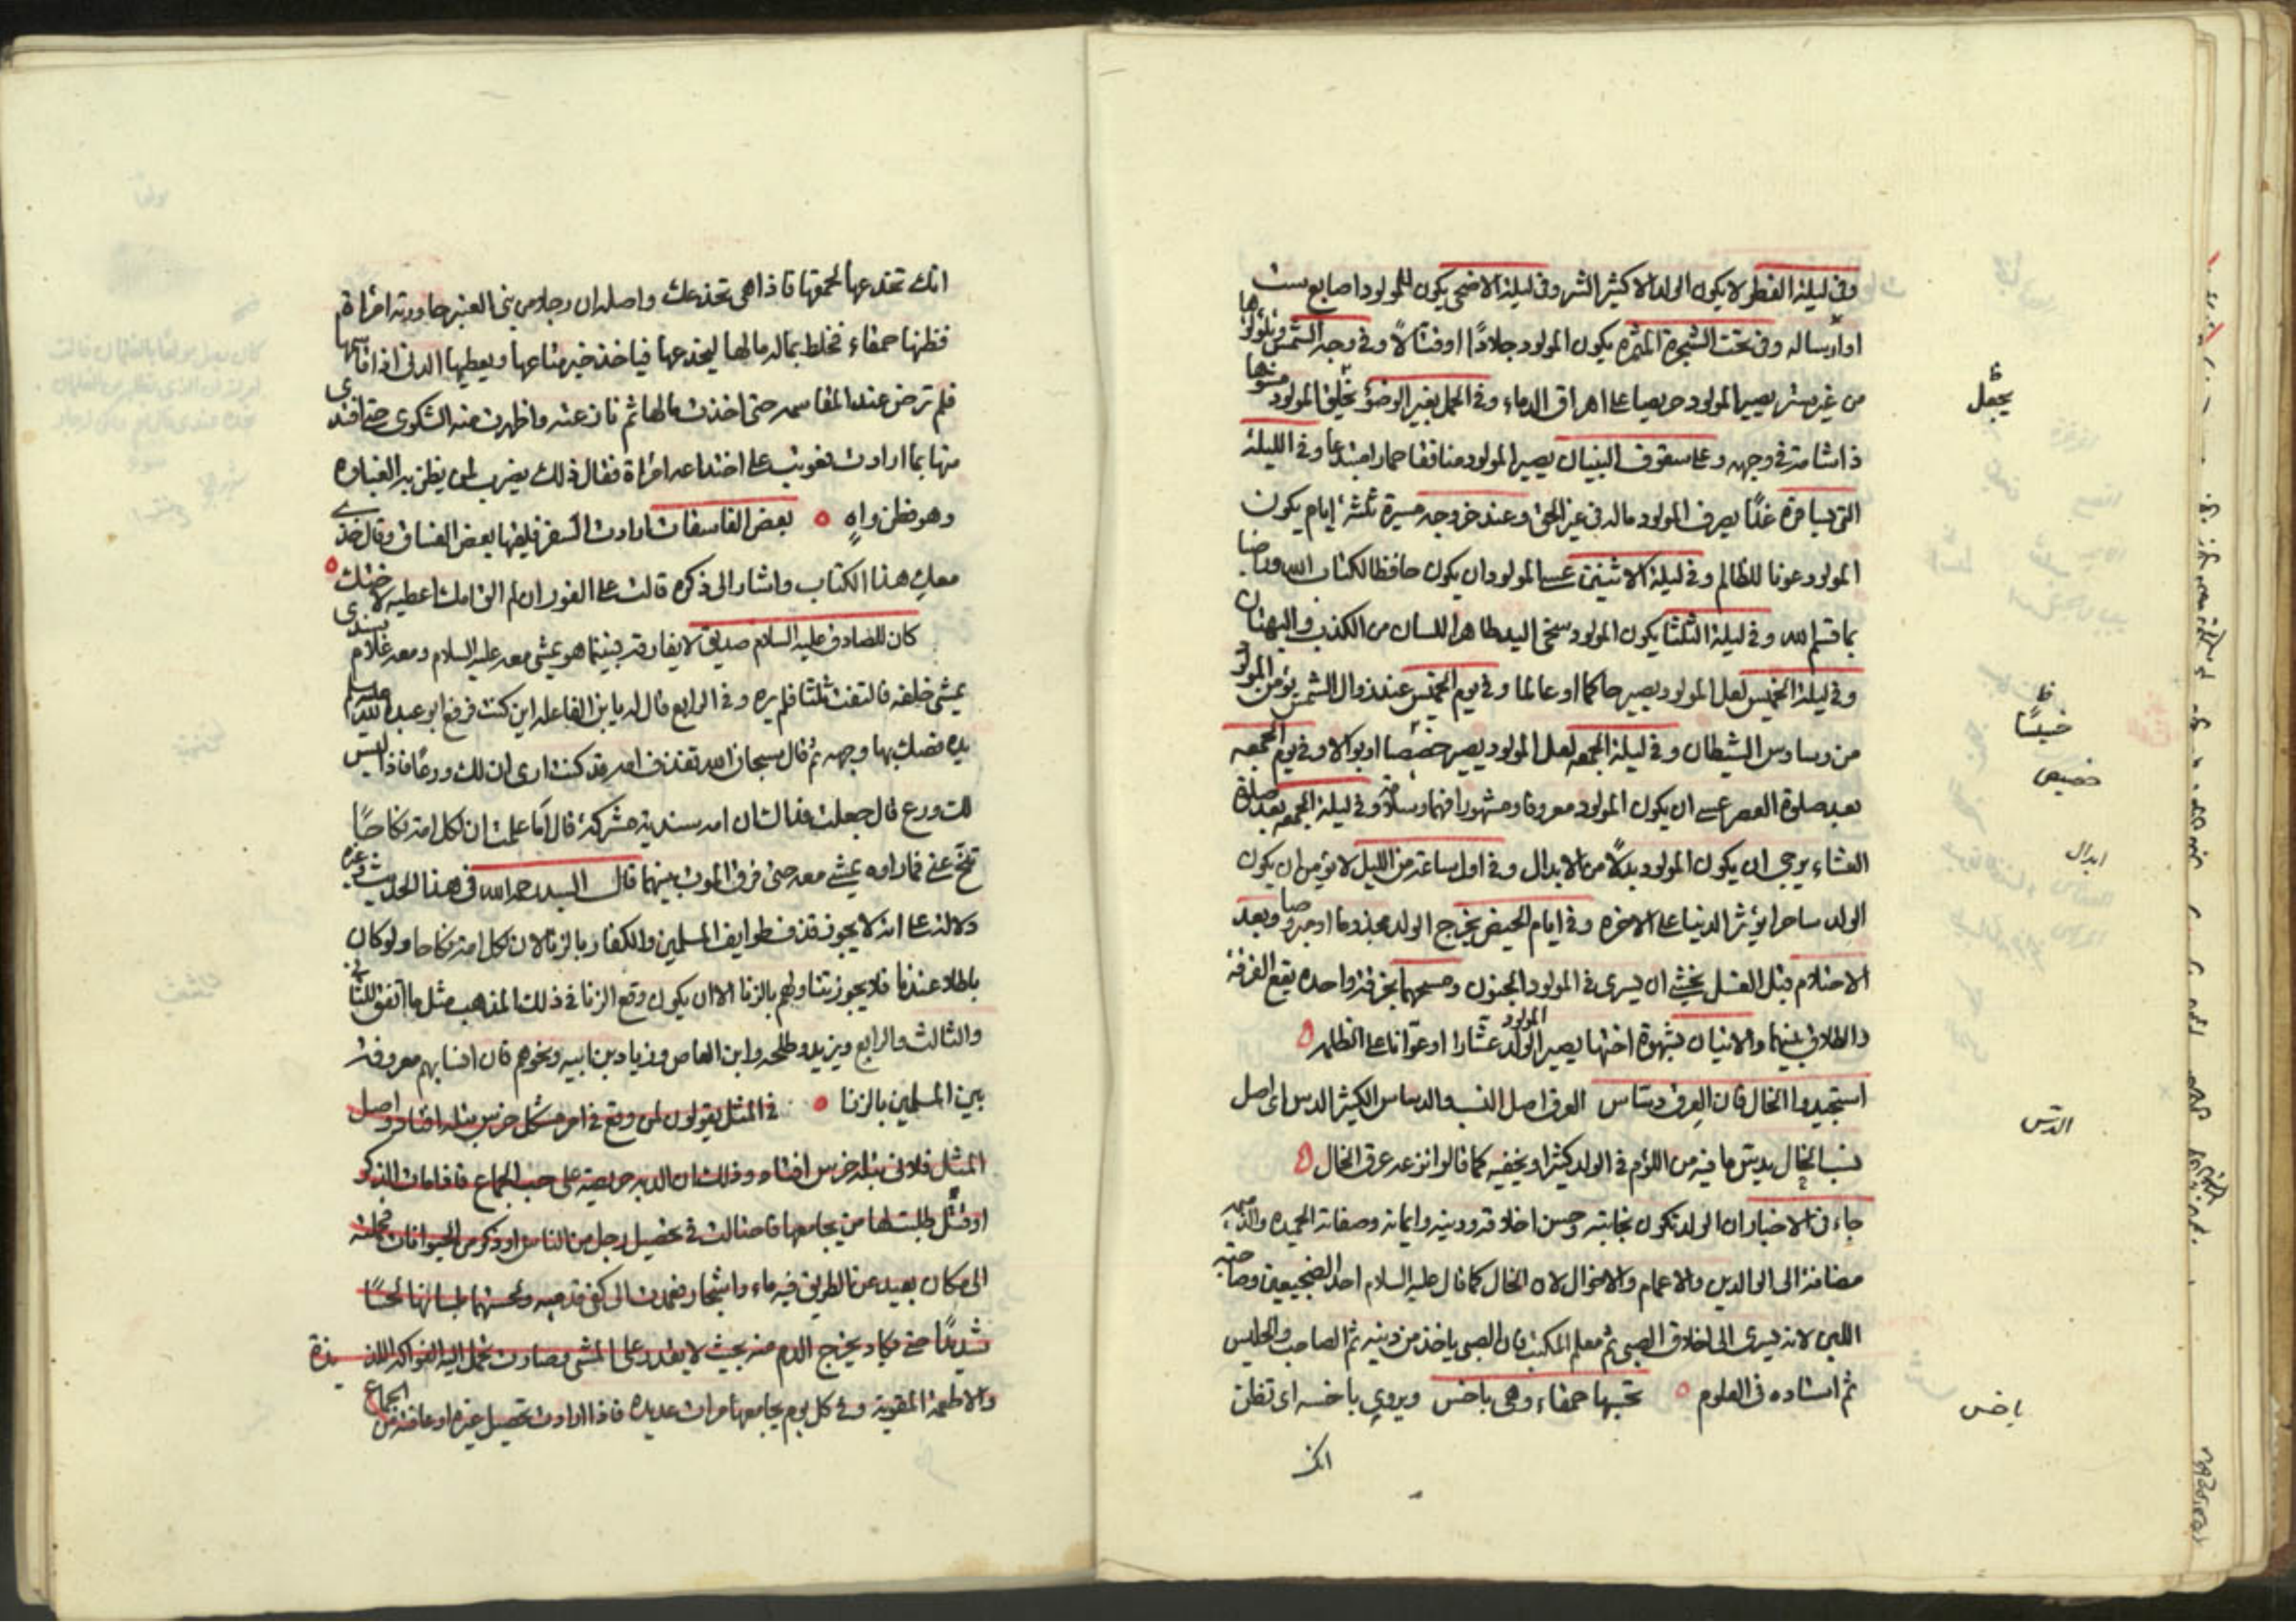 وفي ليلة الفطر لا يكون الولد الا كثير الشر وفي ليلة الاضحى يكون للمولود اصابع ست
او أربسا له وفي تحت الشجرة المثمرة يكون المولود جلادًا او قتالًا وفي وجه الشمس وتلؤلؤها
من غير ستر يصير المولود حريصا على اهراق الدماء وفي الحمل بغير الوضوء يخلق المولود
ذا شامة في وجهه وعلى سقوف البنيان يصير المولود منافقا ممارا مبتدعًا وفي الليلة
التي يسافره غدًا يصرف المولود ماله في غير الحق وعند خروجه مسيرة ثلثة ايام يكون
المولود عونا للظالم وفي ليلة الاثنين عسى المولود ان يكون حافظا لكتاب الله وراضيا
بما قسم الله وفي ليلة الثلثا يكون المولود سخي اليد طاهر اللسان من الكذب والبهتان
وفي ليلة الخميس لعل المولود يصير حاكما او عالما وفي يوم الخميس عند زوال الشمس يؤمن المولود
من وساوس الشيطان وفي ليلة الجمعه لعل المولود يصير خصيصا او بوالا وفي يوم الجمعه
بعد صلوة العصر عسى ان يكون المولود معروفا ومشهورا فهما وسلامة وفي ليلة الجمعه بعد صلوة
العشاء يرجى ان يكون المولود بدلًا من الابدال وفي اول ساعة من الليل لا يؤمن ان يكون
الولد ساحرا يؤثر الدنيا على الاخره وفي ايام الحيض يخرج الولد مجذوما او مبروصا وبعد
الاحتلام قبل الغسل يخشى ان يسرى في المولود الجنون ومسحهما بخرقة واحده يقع الفرقة
والطلاق بينهما والاتيان بشهوة اختها يصير الولد المولود عشارا او عوّانا على الظلمه
استجيدوا الخال فان العرق دسّاس العرق اصل النسب والدساس الكثير الدس اى اصل
نسب الخال يدسّ ما فيه من اللؤم في الولد كثيرا ويخفيه كما قالوا نزعه عرق الخال
جاء في الاخبار ان الولد تكون نجابته وحسن اخلاقه ودينه وايمانه وصفاته الحميده والذميمه
مضافة الى الوالدين والاعمام والاخوال لان الخال كما قال عليه السلام احد الضجيعين وصاحبة
اللبن لانه يسرى الى اخلاق الصبي ثم معلم المكتب فان الصبي ياخذ من دينه ثم الصاحب والجليس
ثم استاده في العلوم تحسبها حمقاء وهي باخس ويروى باخسه اى تظن
انك
يجمل
خبيسًا
خصيص
ابدال
الدسّ
باخس
انك تخدعها لحمقها فاذا هي تخدعك واصله ان رجلا من بني العنبر جاورته امرأة
فظنها حمقاء فخلط بماله مالها ليخدعها فياخذ خير متاعها ويعطيها الدني اذا قاسمها
فلم ترض عند المقاسمه حتى اخذت مالها ثم نازعته واظهرت منه الشكوى حتى افتدى
منها بما ارادت فعوتب على اختداعه امرأة فقال ذلك يضرب لمن يظن به الغباوه
وهو فطن واهٍ بعض الفاسقات ارادت السفر فلقيها بعض الفساق وقال خذى
معك هذا الكتاب واشار الى ذكره قالت على الفور ان لم الق امك اعطيه لاختك
كان للصادق عليه السلام صديق لا يفارقه فبينما هو يمشي معه عليه السلام ومعه غلام سندى
يمشي خلفه فالتفت ثلثا فلم يره وفي الرابع قال له يا بن الفاعله اين كنت فرفع ابو عبدالله عليه السلام
يده فصك بها وجهه ثم قال سبحان الله تقذف امه قد كنت ارى ان لك ورعًا فاذا ليس
لك ورع قال جعلت فداك ان امه سنديه مشركة قال أما علمت ان لكل امة نكاحًا
تنحّ عني فما راوه يمشي معه حتى فرق الموت بينهما قال السيد رحمه الله في هذا الحديث وغيره
دلالة على انه لا يجوز قذف طوايف المسلمين والكفار بالزنا لان لكل امة نكاحا ولو كان
باطلا عندنا فلا يجوز تناولهم بالزنا الا ان يكون وقع الزنا في ذلك المذهب مثل ما اتفق للثاني
والثالث والرابع ويزيد وطلحه وابن العاص وزياد بن ابيه ونحوهم فان انسابهم معروفة
بين المسلمين بالزنا في المثل يقولون لمن وقع في امر مشكل خرس بتله افتاده واصل
المثل فلانى بتله خرس افتاده وذلك ان الدبه حريصة على حب الجماع فاذا مات الذكر
او قتل طلبت لها من يجامعها فاحتالت في تحصيل رجل من الناس او ذكر من الحيوانات فحملته
الى مكان بعيد عن الطريق فيه ماء واشجار فعمدت الى كفي قدميه ولحستهما بلسانها لحسًا
شديدًا حتى يكاد يخرج الدم منه بحيث لا يقدر على المشي وصارت تحمل اليه الفواكه اللذيذة
والاطعمة المقوية وفي كل يوم يجامعها مرات عديده فاذا ارادت تحصيل غيره او عافته من الجماع